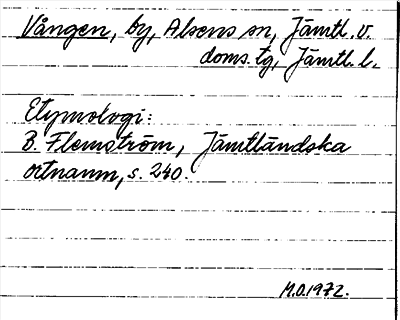 Vången, by, Alsens sn, Jämtl. v.
doms. tg, Jämtl. l.
Etymologi:
B. Flemström, Jämtländska
ortnamn, s. 240.
M.O. 1972.